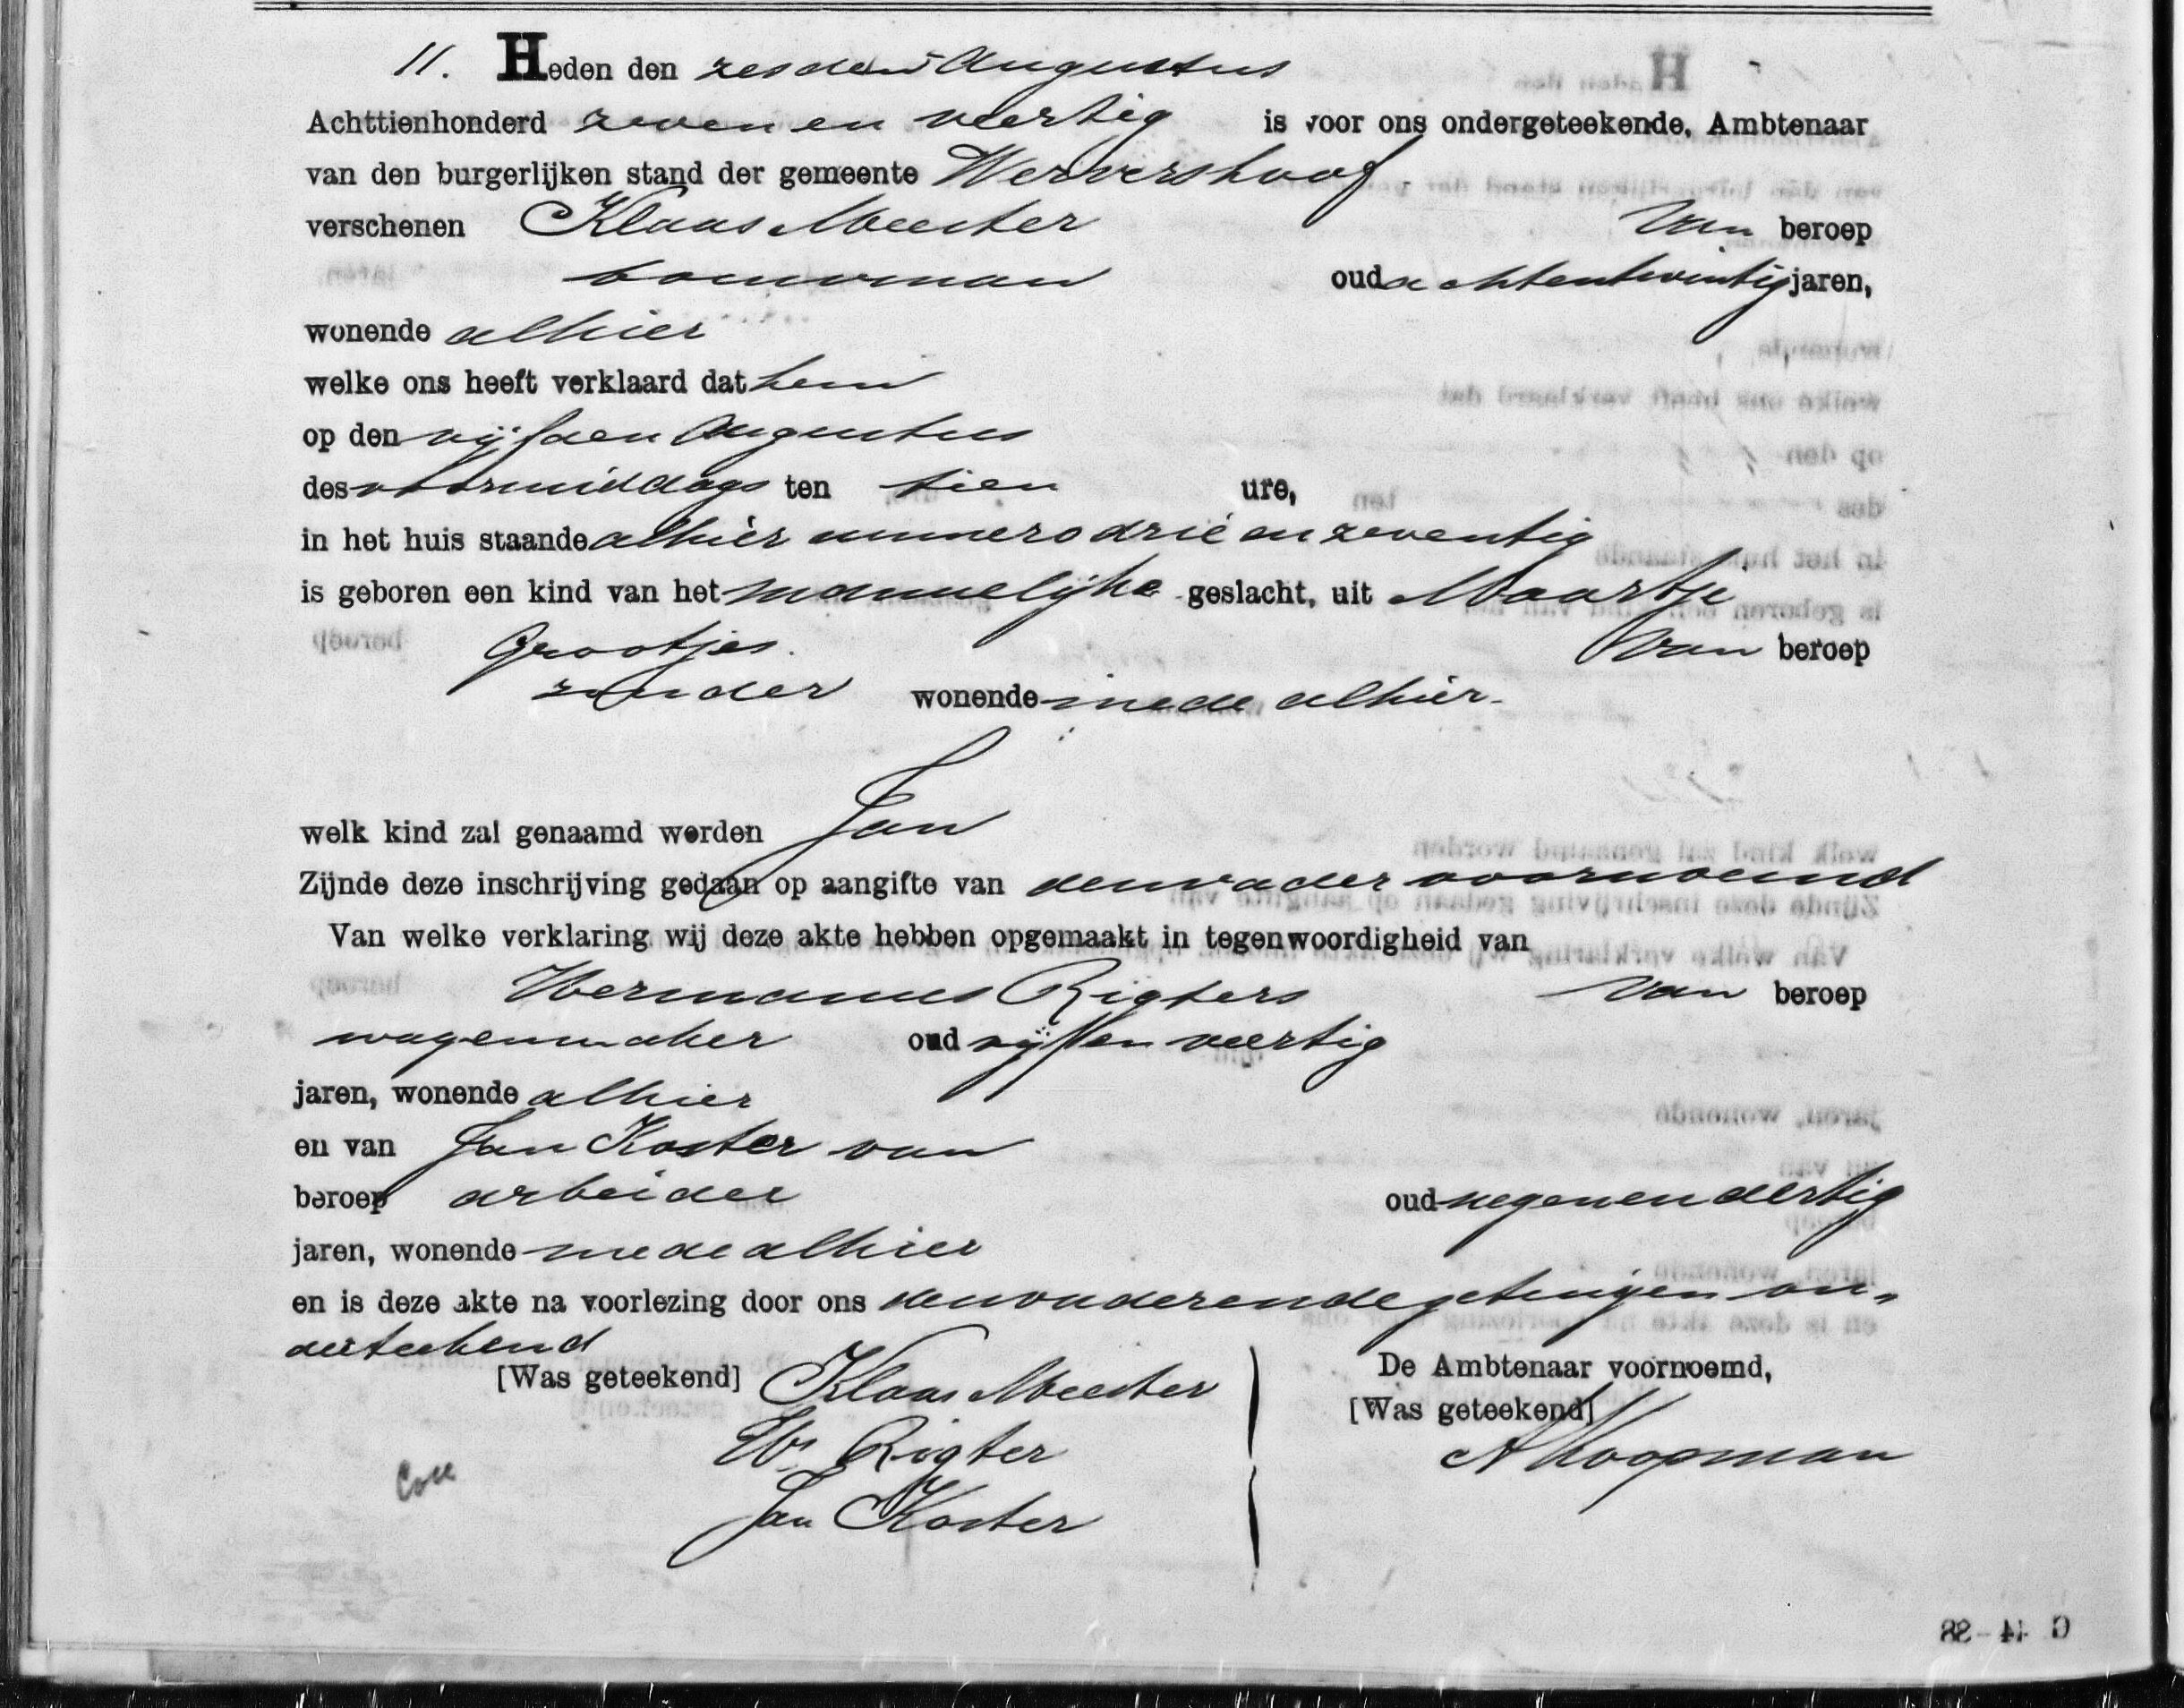 11. Heden den zesden Augustus
Achttienhonderd zeven en veertig is voor ons ondergeteekende, Ambtenaar
van den burgerlijken stand der gemeente Wervershoof.
verschenen Klaas Meester van beroep
bouwman oud achtentwintig jaren,
wonende alhier
welke ons heeft verklaard dat hem
op den vijfden Augustus
des voormiddags ten tien ure,
in het huis staande alhier numero drie en zeventig
is geboren een kind van het mannelijke geslacht, uit Maartje
Grootjes. van beroep
zonder wonende mede alhier.
welk kind zal genaamd worden Jan
Zijnde deze inschrijving gedaan op aangifte van den vader voornoemd
Van welke verklaring wij deze akte hebben opgemaakt in tegenwoordigheid van
Hermanus Rigters van beroep
wagenmaker oud vijf en veertig
jaren, wonende alhier
en van Jan Koster van
beroep arbeider oud negen en dertig
jaren, wonende mede alhier
en is deze akte na voorlezing door ons den vader en de getuigen on-
derteekend
[Was geteekend] Klaas Meester De Ambtenaar voornoemd,
[Was geteekend]
Hs Rigter A Koopman
Jan Koster
Coll
G 44-38